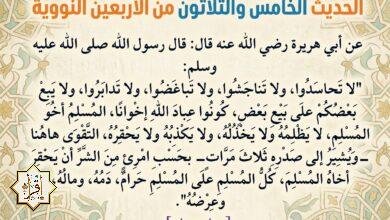 الحديث الخامس والثلاثون من الأربعين النووية
عن أبي هريرة رضي الله عنه قال: قال رسول الله صلى الله عليه
وسلم:
"لا تَحاسَدُوا، ولا تَناجَشُوا، ولا تَباغَضُوا، ولا تَدابَرُوا، ولا يَبِعْ
بَعْضُكُمْ عَلَى بَيْعِ بَعْضٍ، كُونُوا عِبادَ اللهِ إخْوانًا، المُسْلِمُ أخُو
المُسْلِمِ، لا يَظْلِمُهُ ولا يَخْذُلُهُ، ولا يَكْذِبُهُ ولا يَحْقِرُهُ، التَّقْوَى هاهُنا
-ويُشِيرُ إلى صَدْرِهِ ثَلاثَ مَرَّاتٍ- بِحَسْبِ امْرِئٍ مِنَ الشَّرِّ أنْ يَحْقِرَ
أخاهُ المُسْلِمَ، كُلُّ المُسْلِمِ عَلَى المُسْلِمِ حَرامٌ، دَمُهُ، ومالُهُ،
وعِرْضُهُ".